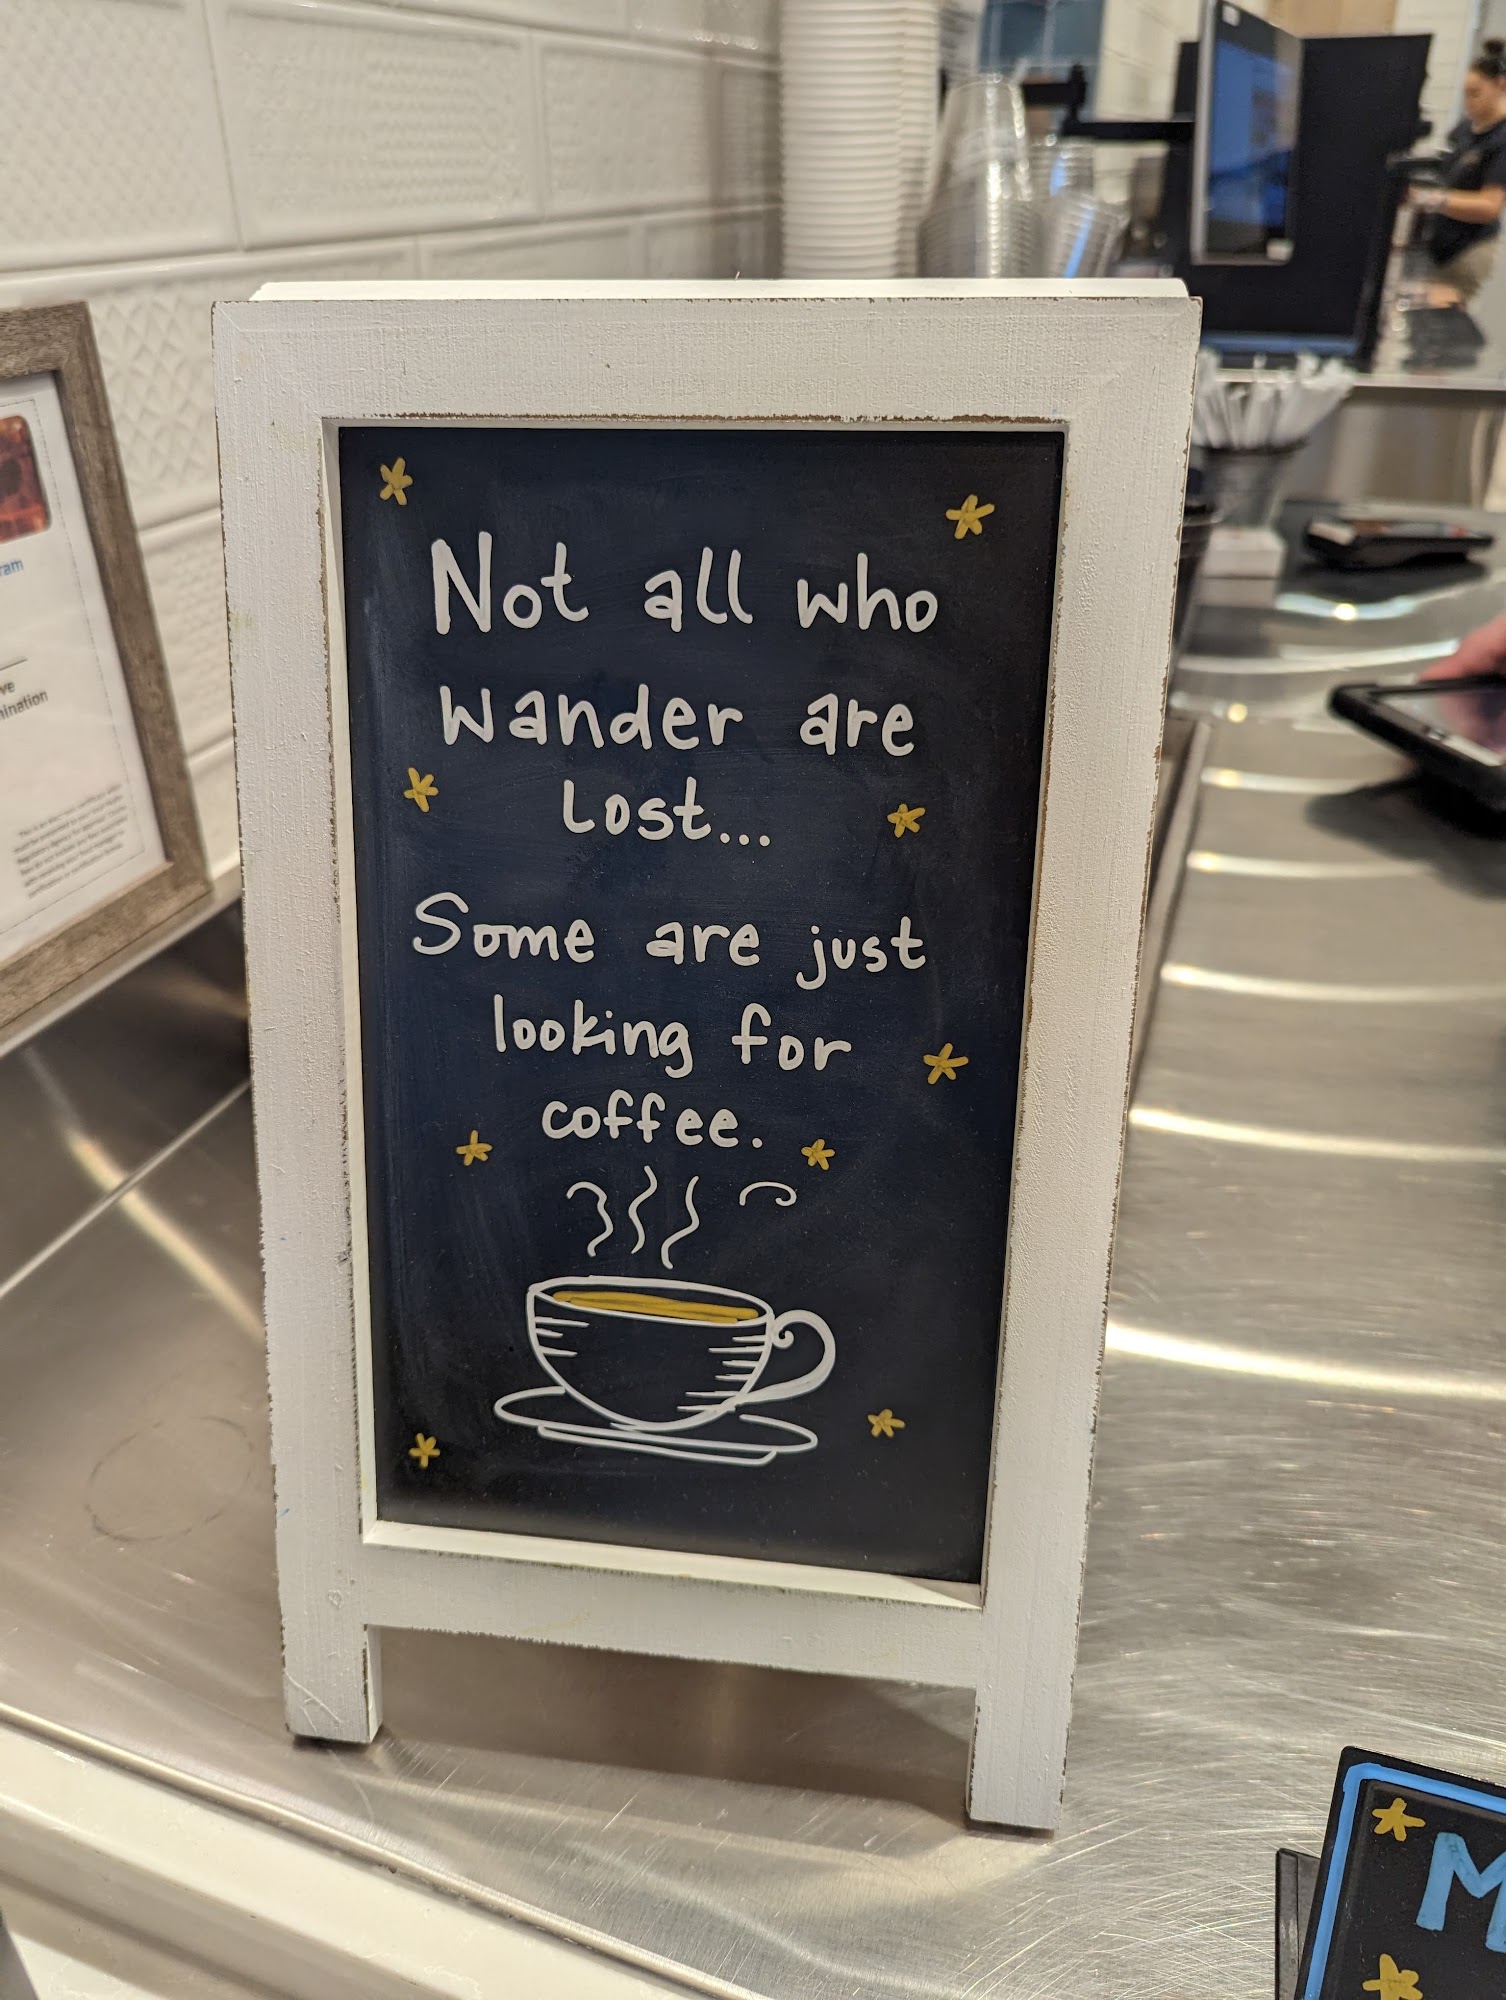 Not all who
wander are
lost...
Some are just
looking for
coffee.
ram
ve
mination
M